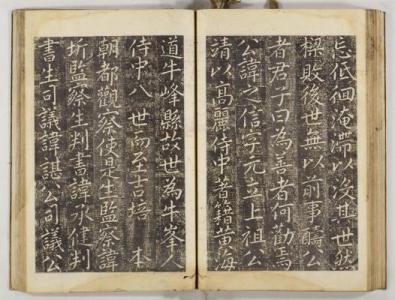 低徊淹滯以沒其世然
敗後世無以前事公
者君子曰為善者何勸焉
公諱之信字元立上祖公
靖以高麗侍中者籍黃海
道牛峰縣故世為牛峯人
侍中八世而至吉培 本
朝都觀察使是生監察諱
監察生判書諱承健判
書生司議諱諶公司議公